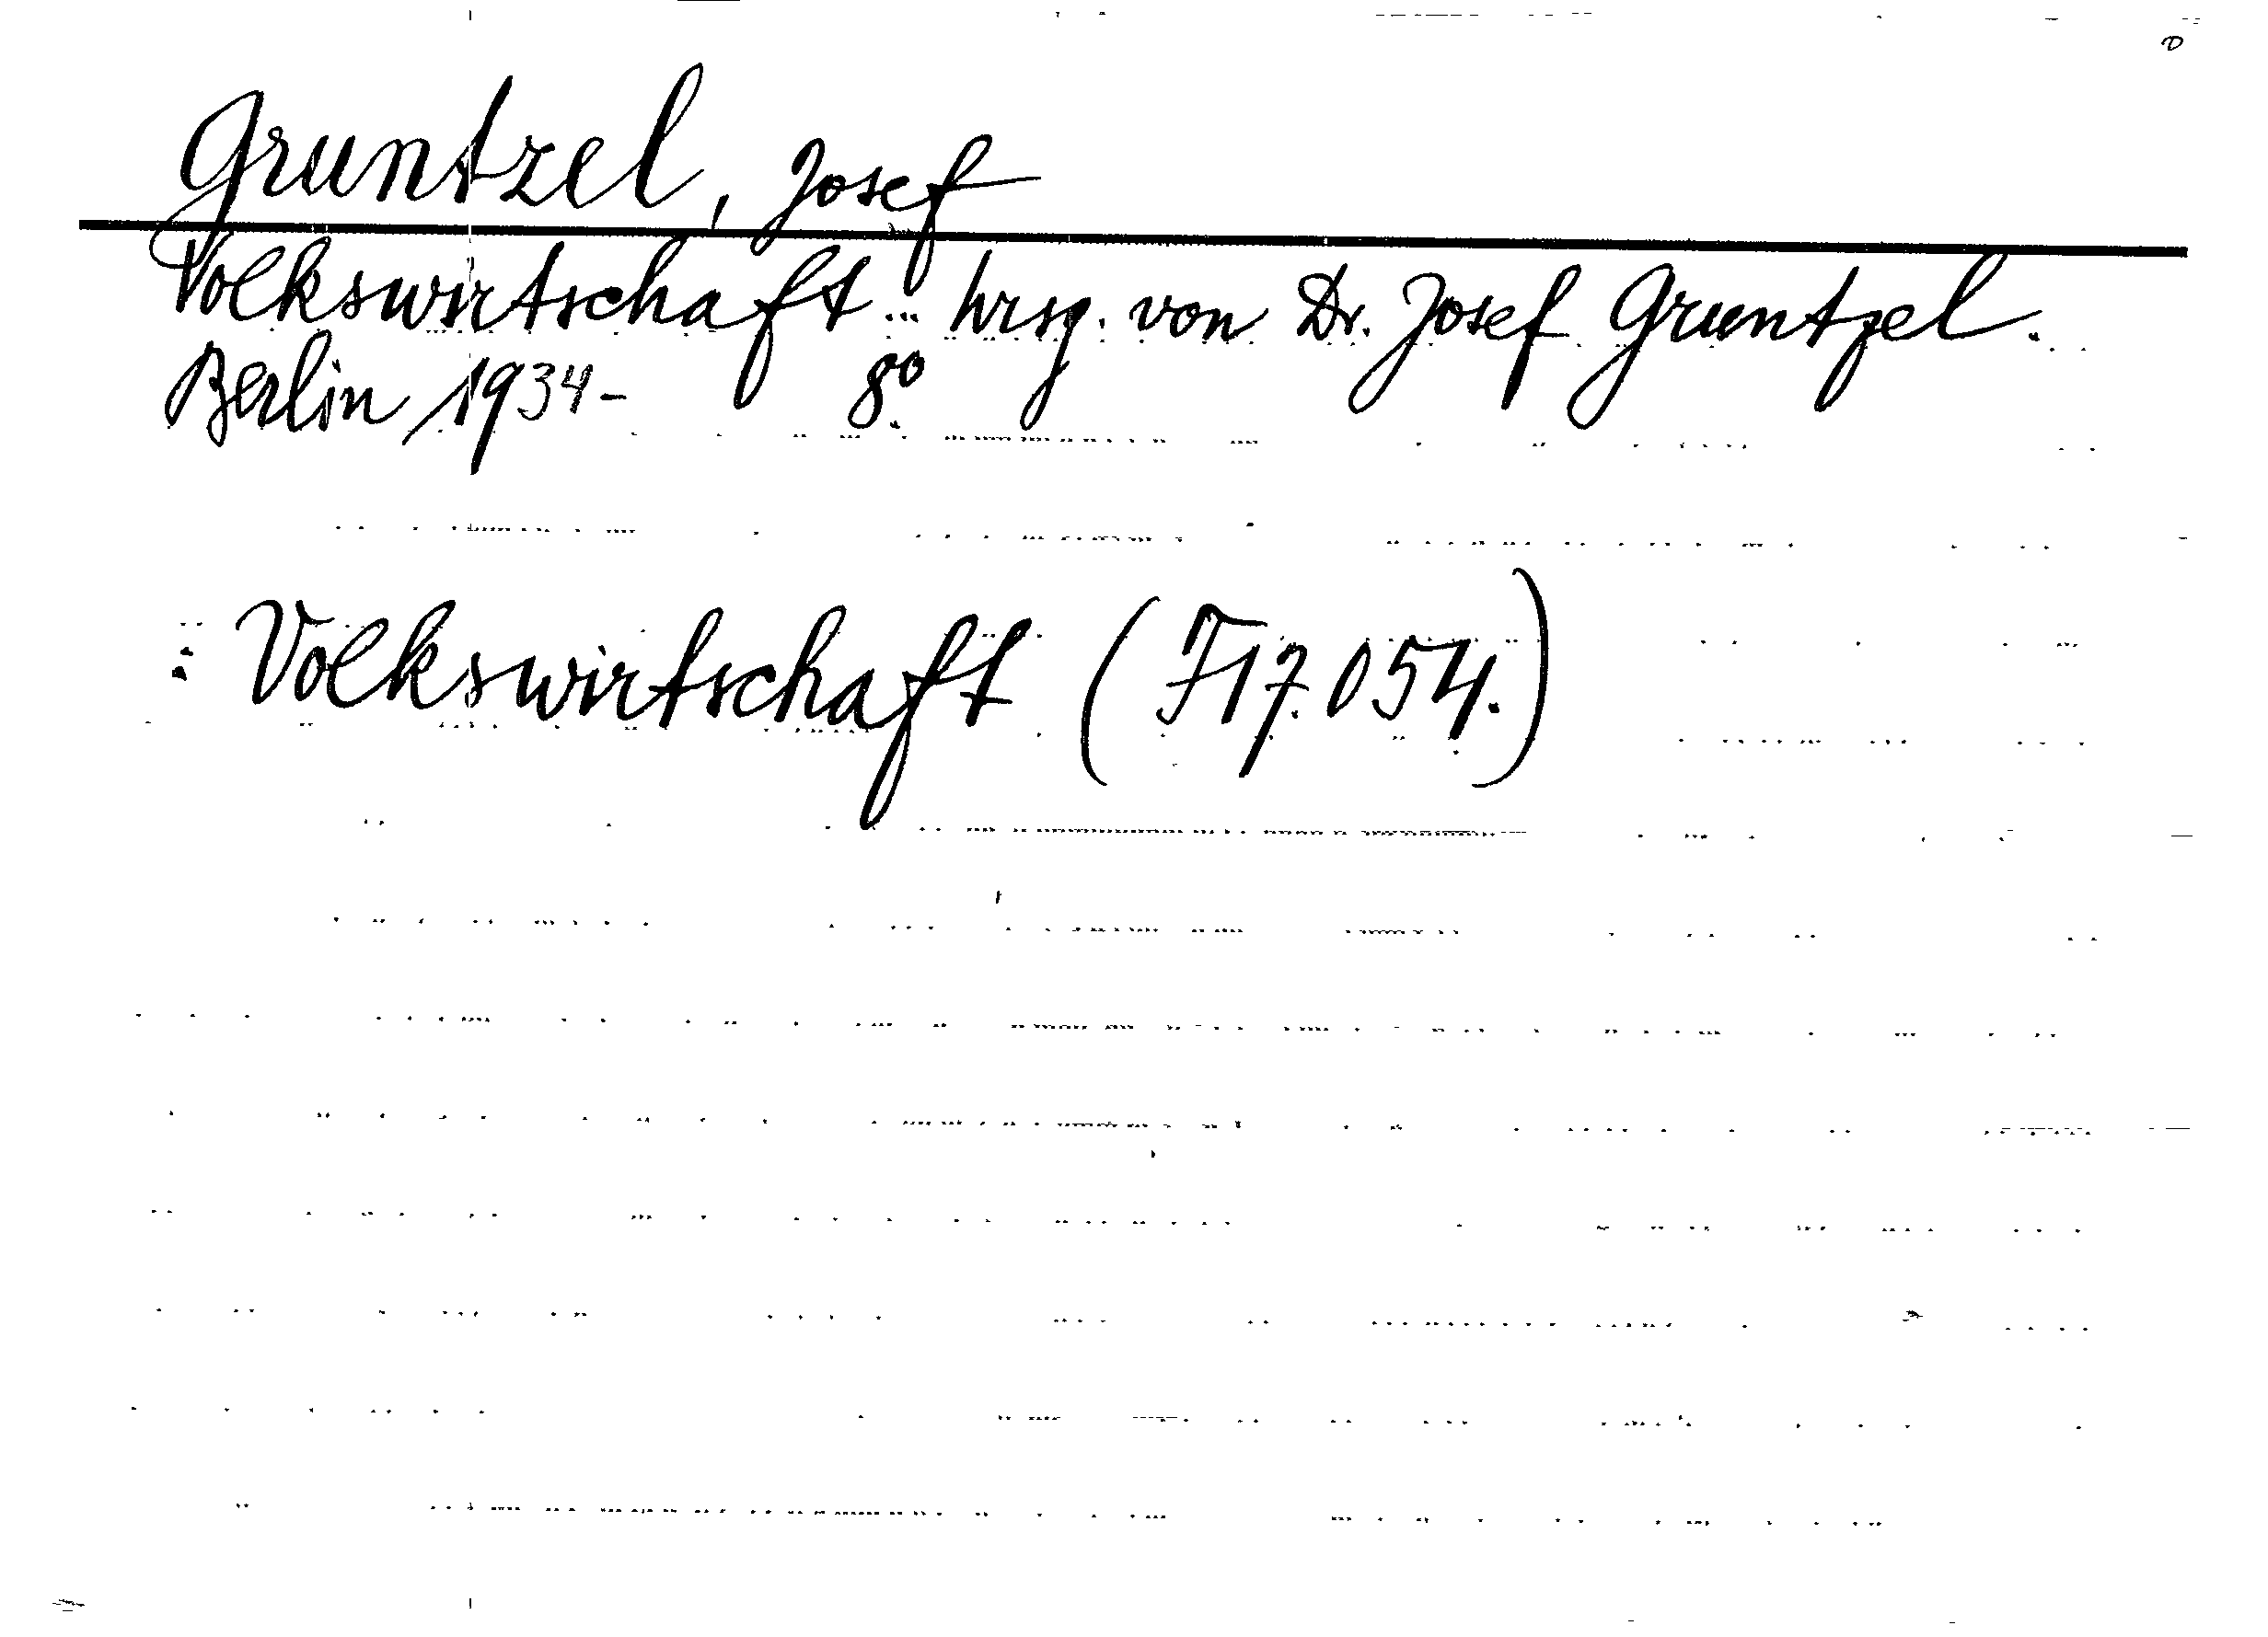 Gruntzel, Josef
Volkswirtschaft ... hrsg. von Dr. Josef Gruntzel.
Berlin 1934- 8°
: Volkswirtschaft (F17.054.)